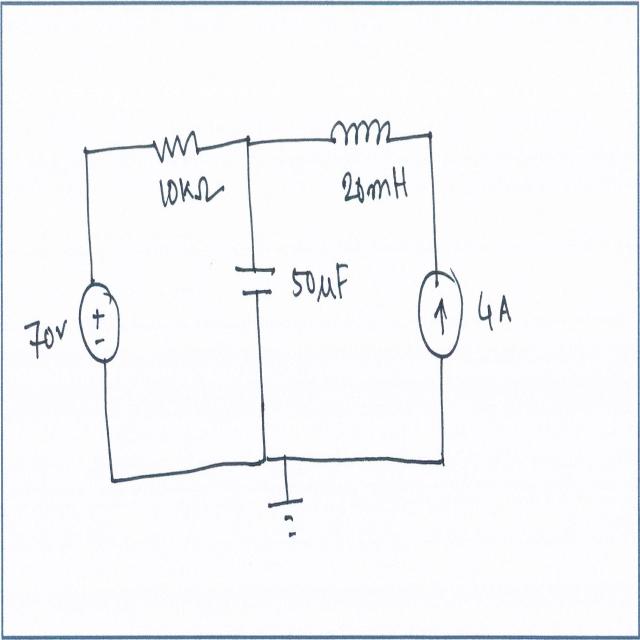 10KΩ
20mH
50μF
70v
+
-
4A